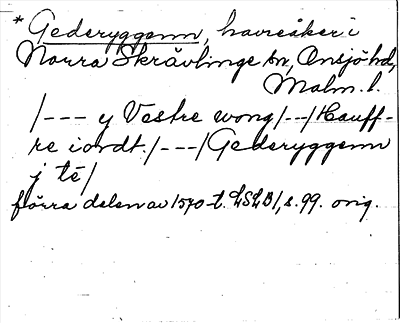 * Gederyggenn, havreåker i
Norra Skrävlinge sn, Onsjö hd,
Malm. l.
/--- y Vestre wong/--/Hauff-
re iordt./---/Gederyggenn
j té/
förra delen av 1570-t. LSLB1, s. 99. orig.